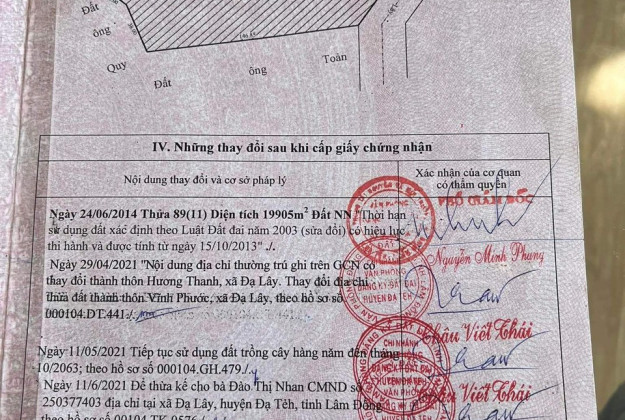 Đất
ông
Quy
Đất
ông
Toàn
IV. Những thay đổi sau khi cấp giấy chứng nhận
Nội dung thay đổi và cơ sở pháp lý
Xác nhận của cơ quan
có thẩm quyền
Ngày 24/06/2014 Thửa 89(11) Diện tích 19905m² Đất NN "Thời hạn
sử dụng đất xác định theo Luật Đất đai năm 2003 (sửa đổi) có hiệu lực
thi hành và được tính từ ngày 15/10/2013" ./.
PHÓ GIÁM ĐỐC
Nguyễn Minh Phung
Ngày 29/04/2021 "Nội dung địa chỉ thường trú ghi trên GCN có
thay đổi thành thôn Hương Thanh, xã Đạ Lây. Thay đổi địa chỉ
Thửa đất thành thôn Vĩnh Phước, xã Đạ Lây, theo hồ sơ số
000104.DT.441./.
VĂN PHÒNG
ĐĂNG KÝ ĐẤT ĐAI
HUYỆN ĐẠ TẺH
CHI NHÁNH
Châu Viết Thái
Ngày 11/05/2021 Tiếp tục sử dụng đất trồng cây hàng năm đến tháng
10/2063; theo hồ sơ số 000104.GH.479./.
Ngày 11/6/2021 Để thừa kế cho bà Đào Thị Nhan CMND số
250377403 địa chỉ tại xã Đạ Lây, huyện Đạ Tẻh, tỉnh Lâm Đồng
theo hồ sơ số 00104.TK.0576./.
Châu Viết Thái